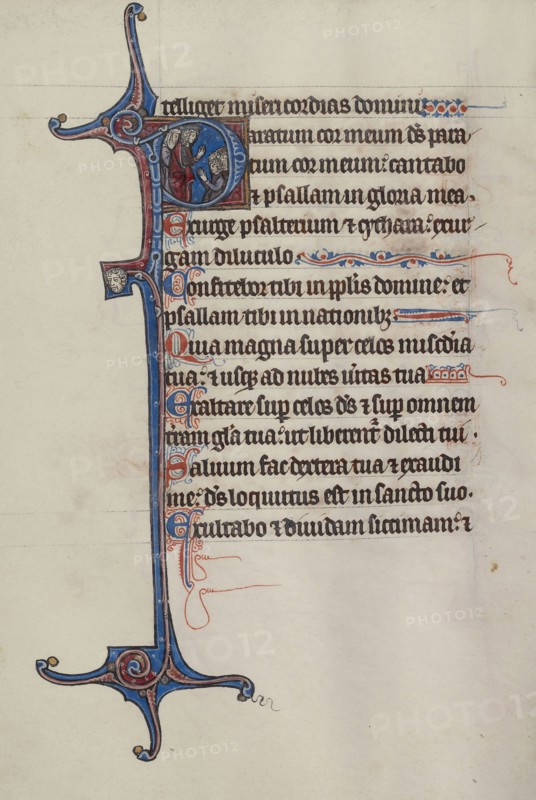 telliget misericordias domini
Paratum cor meum ds para
tum cor meum: cantabo
⁊ psallam in gloria mea.
Exurge psalterium ⁊ cythara: exur
gam diluculo.
Confitebor tibi in pplis domine: et
psallam tibi in nationibꝫ.
Quia magna super celos misc̄dia
tua: ⁊ usqꝫ ad nubes ūitas tua
Exaltare sup̄ celos d̄s ⁊ sup̄ omnem
t̄ram gl̄a tua: ut liberent̄ dilecti tui.
Saluum fac dextera tua ⁊ exaudi
me: d̄s loquutus est in sancto suo.
Exultabo ⁊ diuidam siccimam: ⁊
PHOTO12